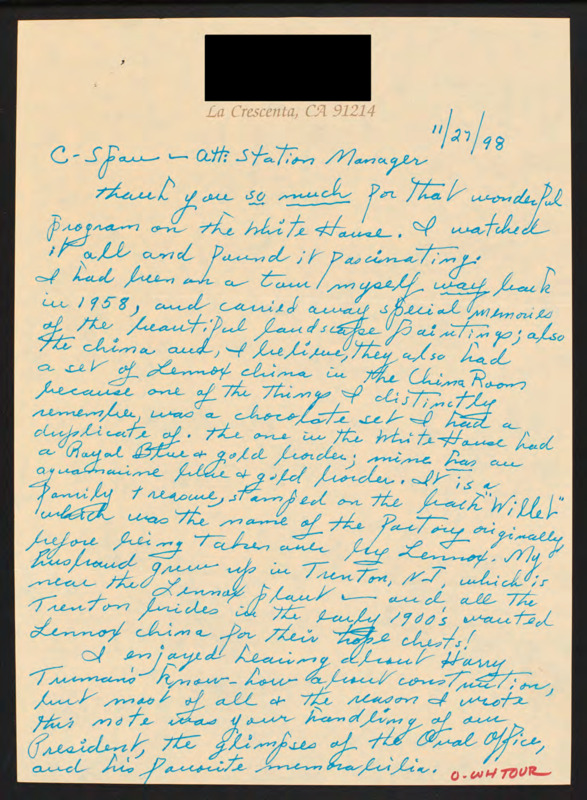 La Crescenta, CA 91214
11/27/98
C-Span - Att: Station Manager
Thank you so much for that wonderful
program on the White House. I watched
it all and found it fascinating.
I had been on a tour myself way back
in 1958, and carried away special memories
of the beautiful landscape paintings; also
the china and, I believe, they also had
a set of Lennox china in the China Room
because one of the things I distinctly
remember, was a chocolate set I had a
duplicate of. The one in the White House had
a Royal Blue & gold border; mine has an
aquamarine blue & gold border. It is a
family treasure, stamped on the back "Willet"
which was the name of the factory originally
before being taken over by Lennox. My
husband grew up in Trenton, NJ, which is
near the Lennox plant - and all the
Trenton brides in the early 1900's wanted
Lennox china for their hope chests!
I enjoyed hearing about Harry
Truman's know-how about construction,
but most of all & the reason I wrote
this note was your handling of our
President, the glimpses of the Oval Office,
and his favorite memorabilia.
O-WHTOUR